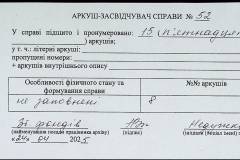 АРКУШ-ЗАСВІДЧУВАЧ СПРАВИ № 52
У справі підшито і пронумеровано: 15 (п'ятнадцять
) аркушів;
у т. ч.: літерні аркуші:
пропущені номери:
+ аркушів внутрішнього опису
Особливості фізичного стану та формування справи
№№ аркушів
не заповнені 8
фондів
(підпис)
«24» 04 2025